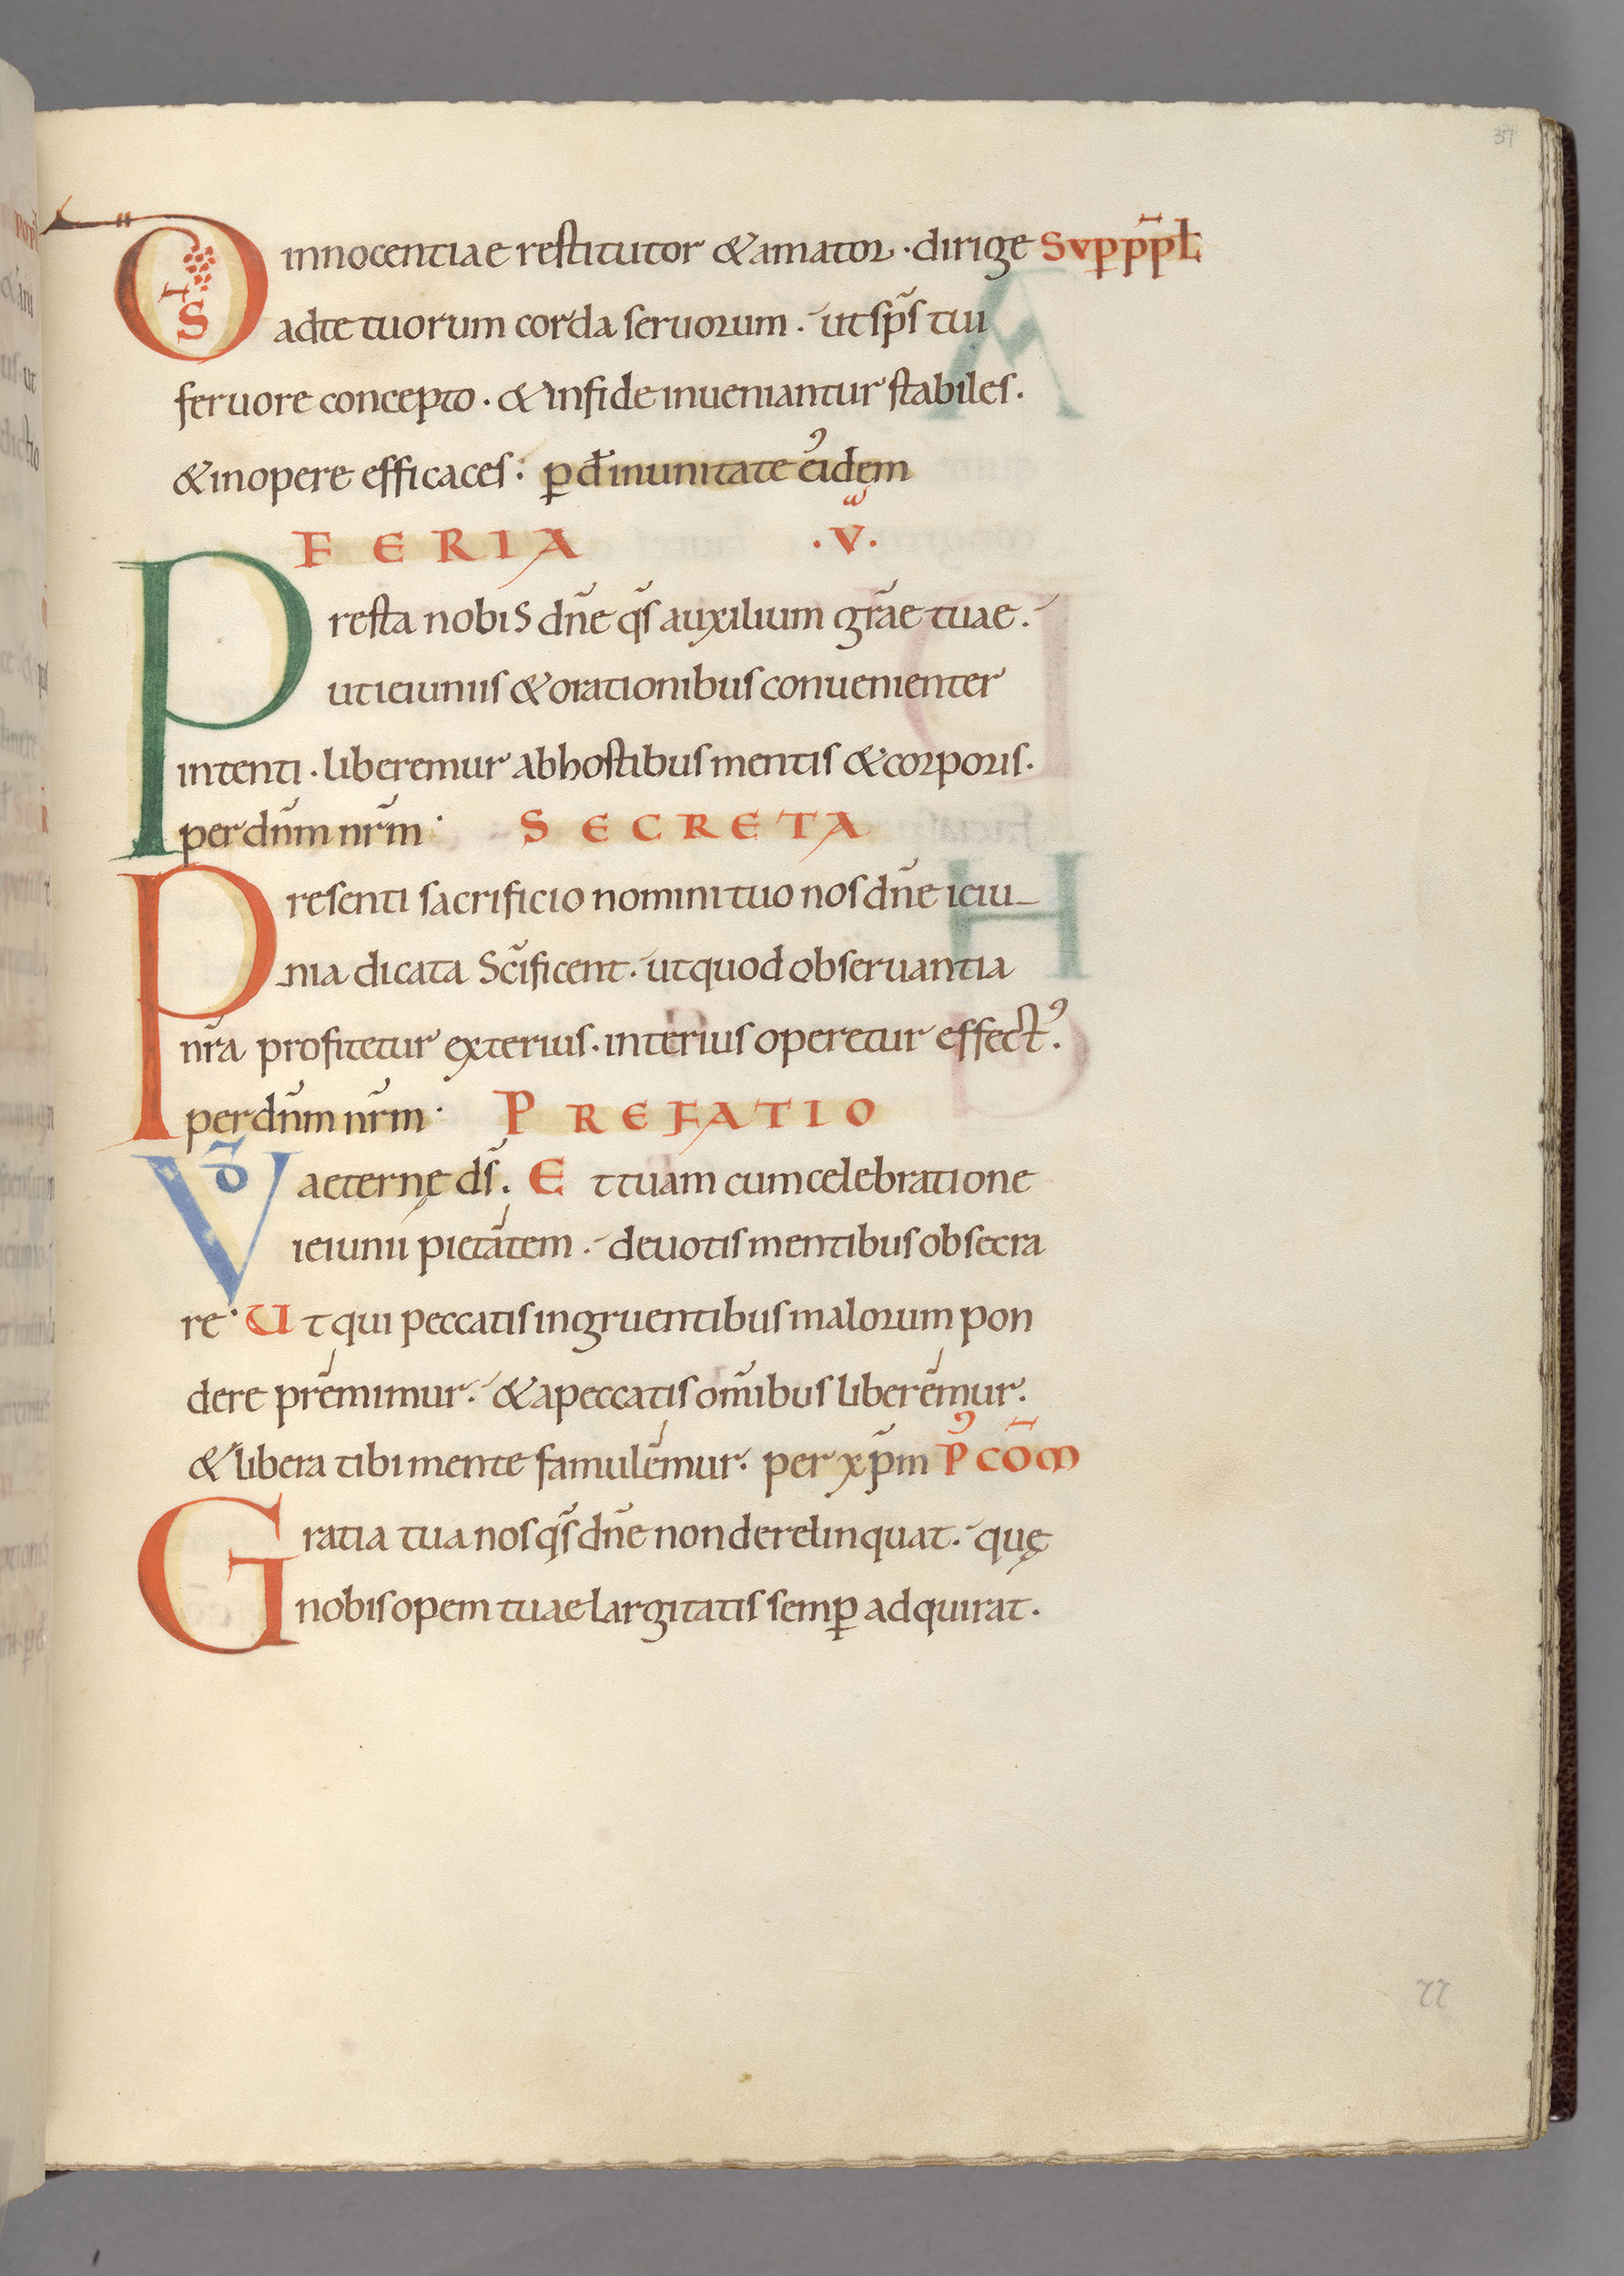 37
D̄S innocentiae restitutor & amator · dirige SVP PP̄L
ad te tuorum corda seruorum · ut sp̄s tui
feruore concepto · & in fide inueniantur stabiles ·
& in opere efficaces : ꝑ d̄ in unitate eı᾽dem
FERIA · V ·
Presta nobis dn̄e qs̄ auxilium gr̄ae tuae ·
ut ieiuniis & orationibus conuenienter
intenti · liberemur ab hostibus mentis & corporis ·
per dn̄m nr̄m · SECRETA
Presenti sacrificio nomini tuo nos dn̄e ieiu-
-nia dicata sc̄ificent · ut quod obseruantia
nr̄a profitetur exterius · interius operetur effectꝰ ·
per dn̄m nr̄m · PREFATIO
VD̄ aeternę ds̄ . Et tuam cum celebratione
ieiunii pietatem · deuotis mentibus obsecra
re · Ut qui peccatis ingruentibus malorum pon
dere premimur · & a peccatis om̄ibus liberemur ·
& libera tibi mente famulemur · per xp̄m Pꝰ CŌM
Gratia tua nos qs̄ dn̄e non derelinquat · quę
nobis opem tuae largitatis semꝑ adquirat ·